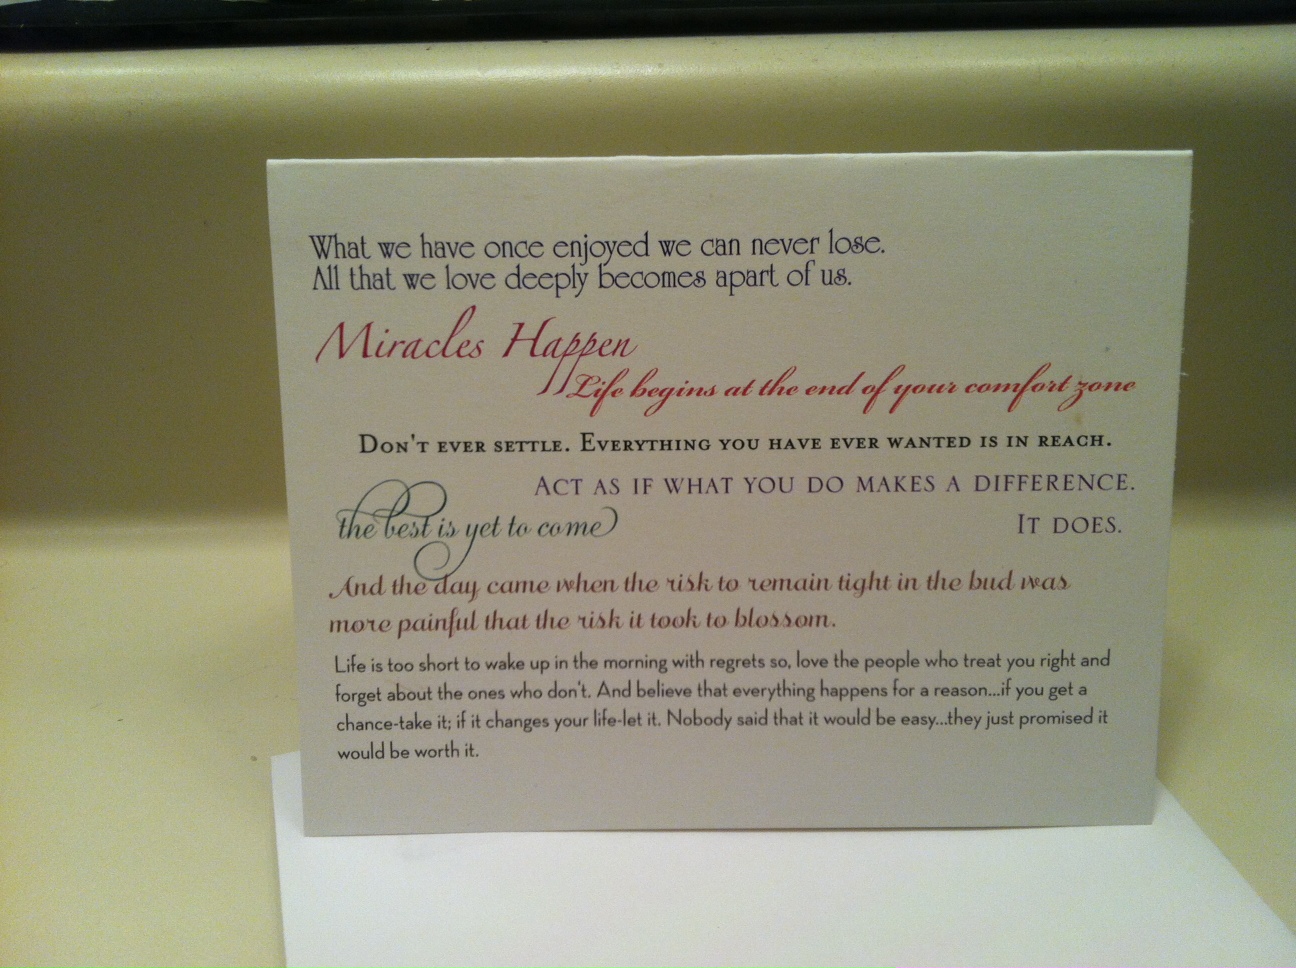 What we have once enjoyed we can never lose.
All that we love deeply becomes apart of us.
Miracles Happen
Life begins at the end of your comfort zone
DON'T EVER SETTLE. EVERYTHING YOU HAVE EVER WANTED IS IN REACH.
ACT AS IF WHAT YOU DO MAKES A DIFFERENCE.
IT DOES.
the best is yet to come
And the day came when the risk to remain tight in the bud was
more painful that the risk it took to blossom.
Life is too short to wake up in the morning with regrets so, love the people who treat you right and
forget about the ones who don't. And believe that everything happens for a reason...if you get a
chance-take it; if it changes your life-let it. Nobody said that it would be easy...they just promised it
would be worth it.